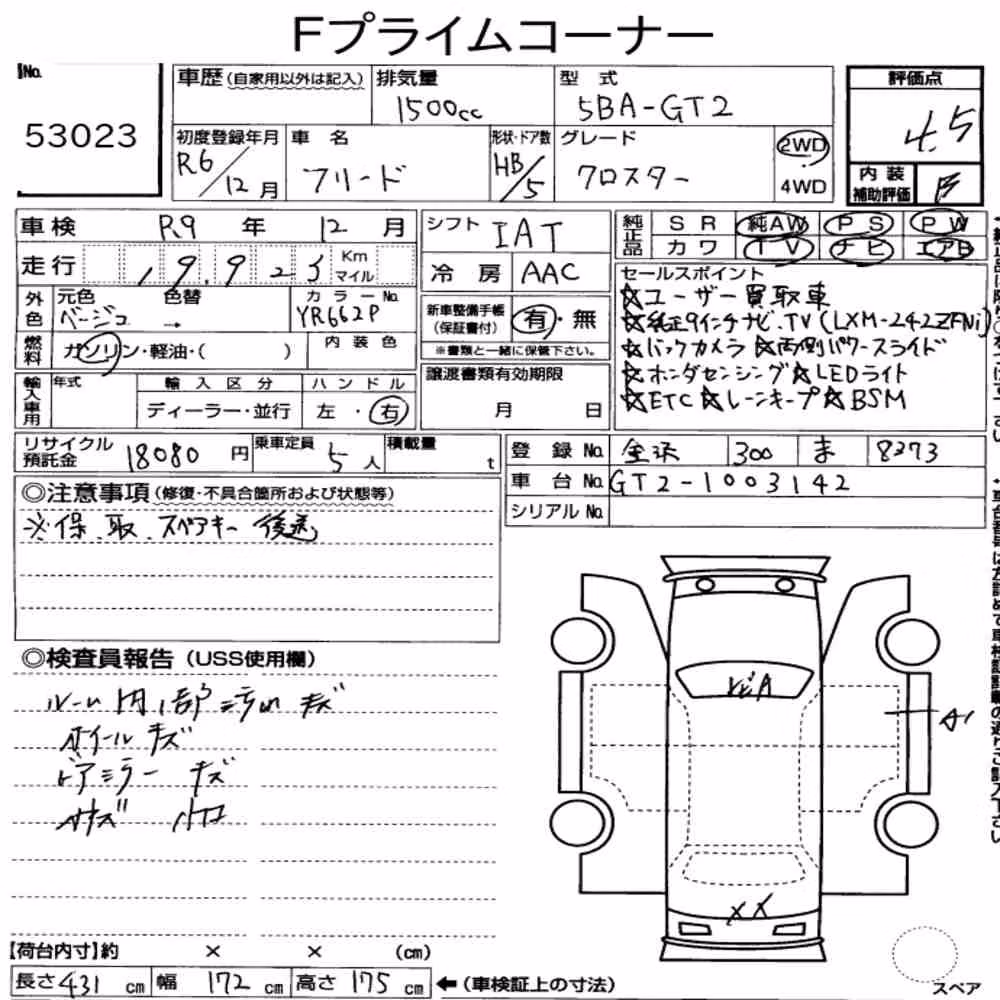 Fプライムコーナー
No.
53023
車歴(自家用以外は記入)
排気量
1500cc
型 式
5BA-GT2
評価点
4.5
初度登録年月
R6/12月
車 名
フリード
形状・ドア数
HB/5
グレード
クロスター
2WD
4WD
内装補助評価
B
車検 R9 年 12 月
シフト IAT
純正品
SR 純AW PS PW
カワ TV ナビ エアB
走行 19,923 Km マイル
冷 房 AAC
セールスポイント
☆ユーザー買取車
☆純正9インチナビ.TV(LXM-242ZFNi)
☆バックカメラ ☆両側パワースライド
☆ホンダセンシング☆LEDライト
☆ETC☆レーンキープ☆BSM
外色
元色 色替
ベージュ →
カラーNo.
YR662P
新車整備手帳(保証書付)
有・無
※書類と一緒に保管下さい。
燃料
ガソリン・軽油・( )
内装色
輸入車用
年式
輸入区分
ディーラー・並行
ハンドル
左・右
譲渡書類有効期限
月 日
リサイクル預託金 18080 円
乗車定員 5 人
積載量 t
登 録 No. 300 ま 8273
車 台 No. GT2-1003142
シリアル No.
◎注意事項(修復・不具合箇所および状態等)
※保.取.スペアキー 後送
◎検査員報告(USS使用欄)
ルーム内、部 汚れ キズ
ホイール キズ
ドアミラー キズ
トビA
A1
XX
スペア
【荷台内寸】約 × × (cm)
長さ 431 cm 幅 172 cm 高さ 175 cm
←(車検証上の寸法)